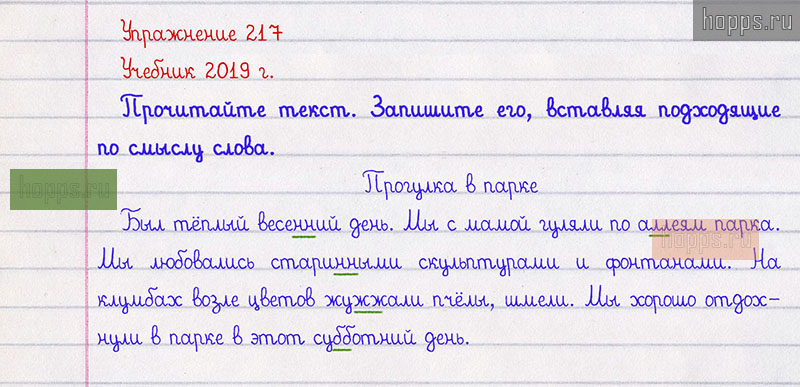 hopps.ru
Упражнение 217
Учебник 2019 г.
Прочитайте текст. Запишите его, вставляя подходящие
по смыслу слова.
hopps.ru
Прогулка в парке
Был тёплый весенний день. Мы с мамой гуляли по аллеям парка.
hopps.ru
Мы любовались старинными скульптурами и фонтанами. На
клумбах возле цветов жужжали пчёлы, шмели. Мы хорошо отдох-
нули в парке в этот субботний день.